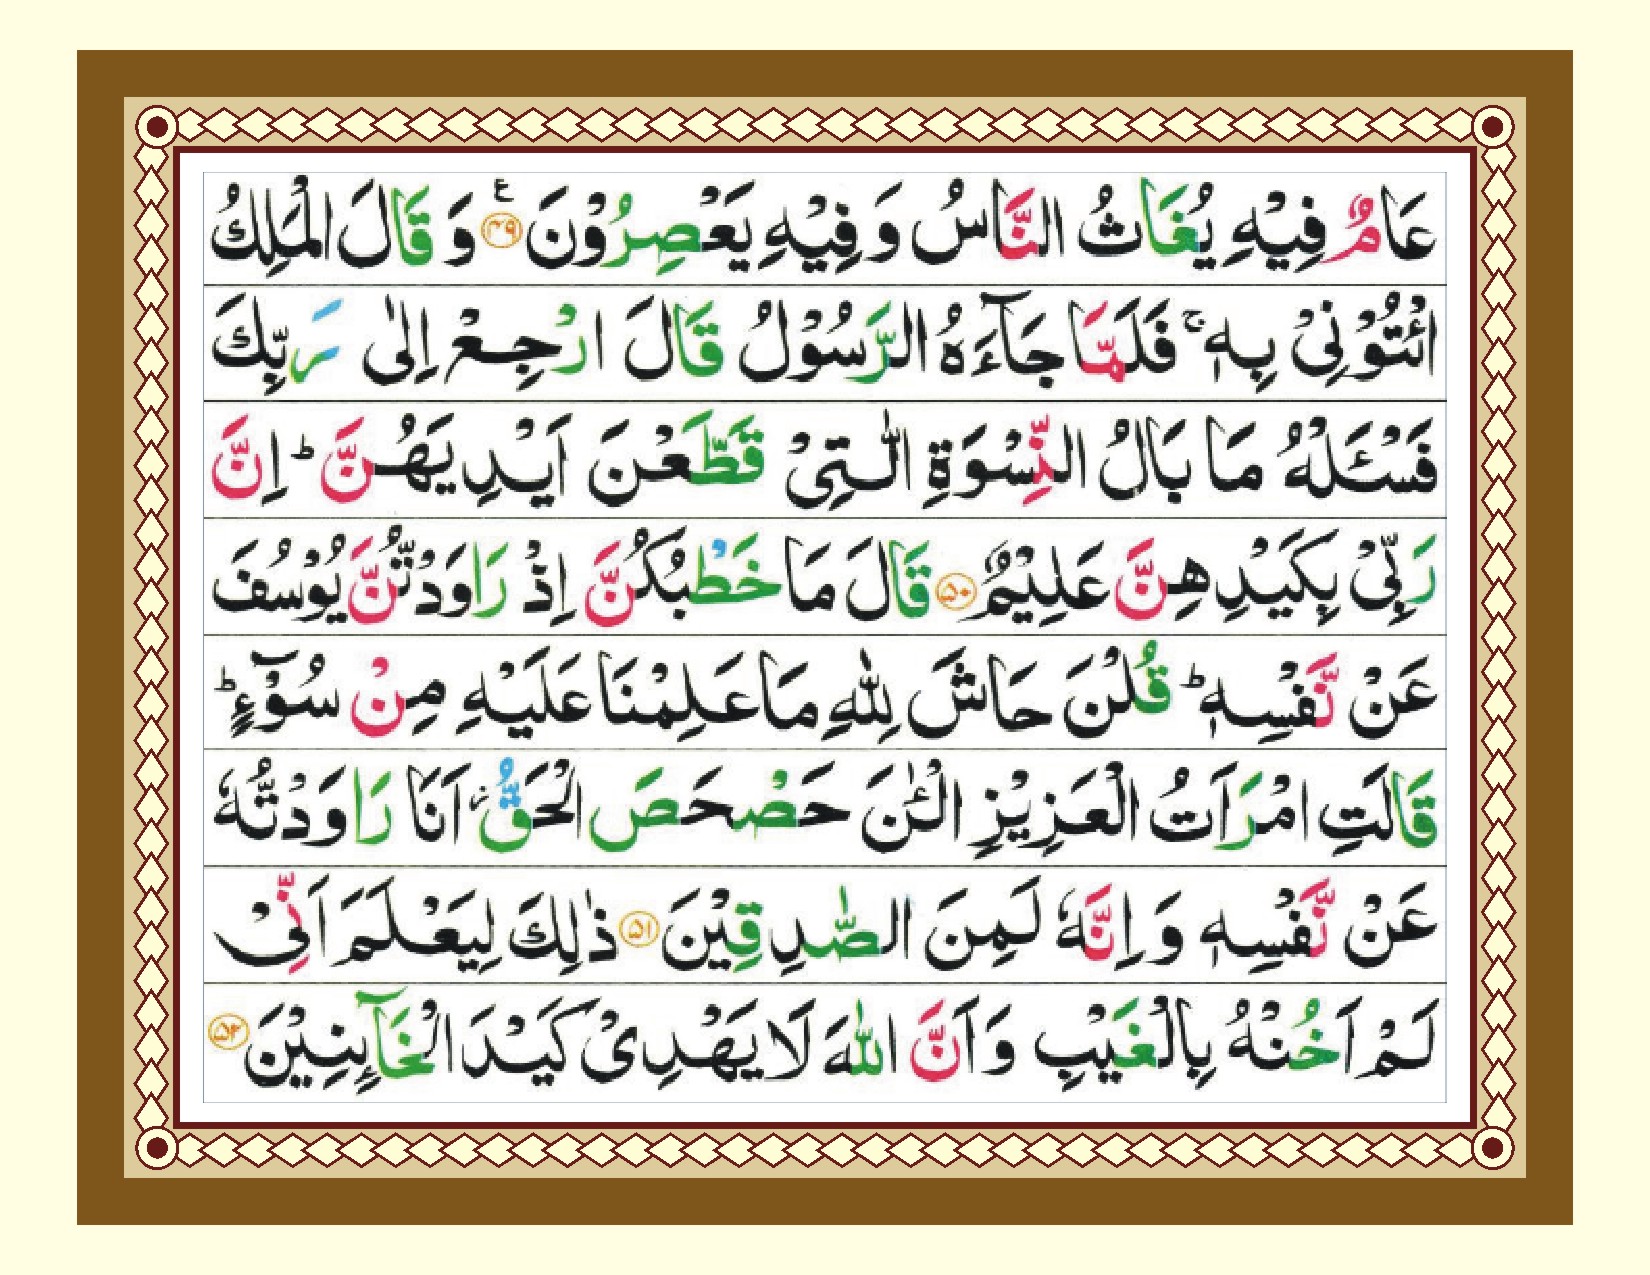 عَامٌ فِيْهِ يُغَاثُ النَّاسُ وَفِيْهِ يَعْصِرُوْنَ ۴۹ ع وَقَالَ الْمَلِكُ
ائْتُوْنِيْ بِهٖ ۚ فَلَمَّا جَآءَهُ الرَّسُوْلُ قَالَ ارْجِعْ اِلٰى رَبِّكَ
فَسْـَٔلْهُ مَا بَالُ النِّسْوَةِ الّٰتِيْ قَطَّعْنَ اَيْدِيَهُنَّ ؕ اِنَّ
رَبِّيْ بِكَيْدِهِنَّ عَلِيْمٌ ۵۰ قَالَ مَا خَطْبُكُنَّ اِذْ رَاوَدْتُّنَّ يُوْسُفَ
عَنْ نَّفْسِهٖ ؕ قُلْنَ حَاشَ لِلّٰهِ مَا عَلِمْنَا عَلَيْهِ مِنْ سُوْٓءٍ ؕ
قَالَتِ امْرَاَتُ الْعَزِيْزِ الْـٰٔنَ حَصْحَصَ الْحَقُّ ؗ اَنَا رَاوَدْتُّهٗ
عَنْ نَّفْسِهٖ وَاِنَّهٗ لَمِنَ الصّٰدِقِيْنَ ۵۱ ذٰلِكَ لِيَعْلَمَ اَنِّيْ
لَمْ اَخُنْهُ بِالْغَيْبِ وَاَنَّ اللّٰهَ لَا يَهْدِيْ كَيْدَ الْخَآىِٕنِيْنَ ۵۲